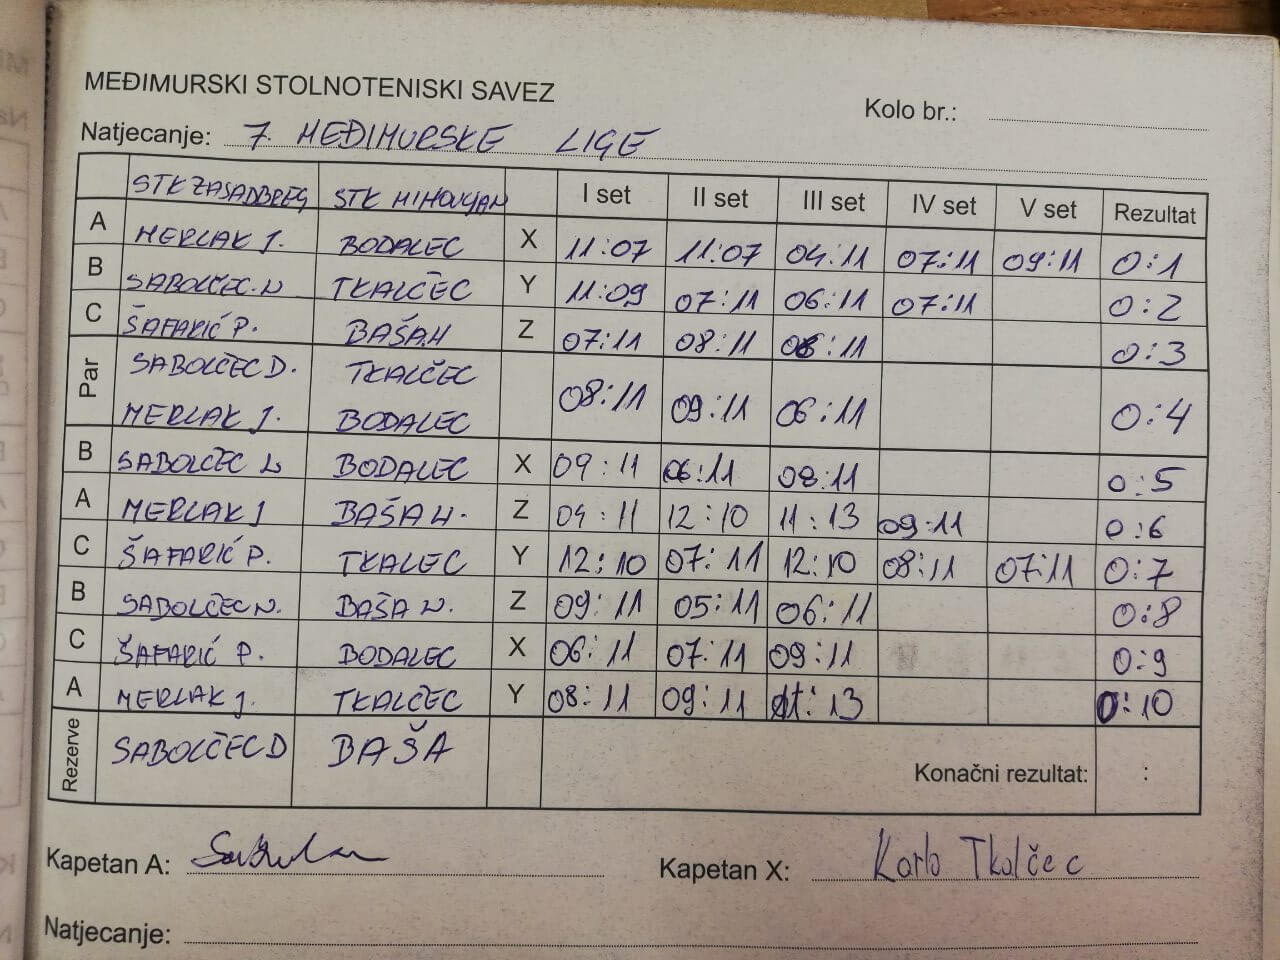 MEĐIMURSKI STOLNOTENISKI SAVEZ
Kolo br.:
Natjecanje: 7. MEĐIMURSKE LIGE
STK ZASADBREG STK MIHOVLJAN I set II set III set IV set V set Rezultat
A MERLAK J. BODALEC X 11:07 11:07 04:11 07:11 09:11 0:1
B SABOLČEC N TKALČEC Y 11:09 07:11 06:11 07:11 0:2
C ŠAFARIĆ P. BAŠA H Z 07:11 08:11 06:11 0:3
Par SABOLČEC D. TKALČEC
MERLAK J. BODALEC 08:11 09:11 06:11 0:4
B SABOLČEC BODALEC X 09:11 06:11 08:11 0:5
A MERLAK J BAŠA Z 04:11 12:10 11:13 09:11 0:6
C ŠAFARIĆ P. TKALEC Y 12:10 07:11 12:10 08:11 07:11 0:7
B SABOLČEC N. BAŠA Z 09:11 05:11 06:11 0:8
C ŠAFARIĆ P. BODALEC X 06:11 07:11 09:11 0:9
A MERLAK J. TKALČEC Y 08:11 09:11 11:13 0:10
Rezerve SABOLČEC D BAŠA
Konačni rezultat: :
Kapetan A: Kapetan X: Karlo Tkalčec
Natjecanje: